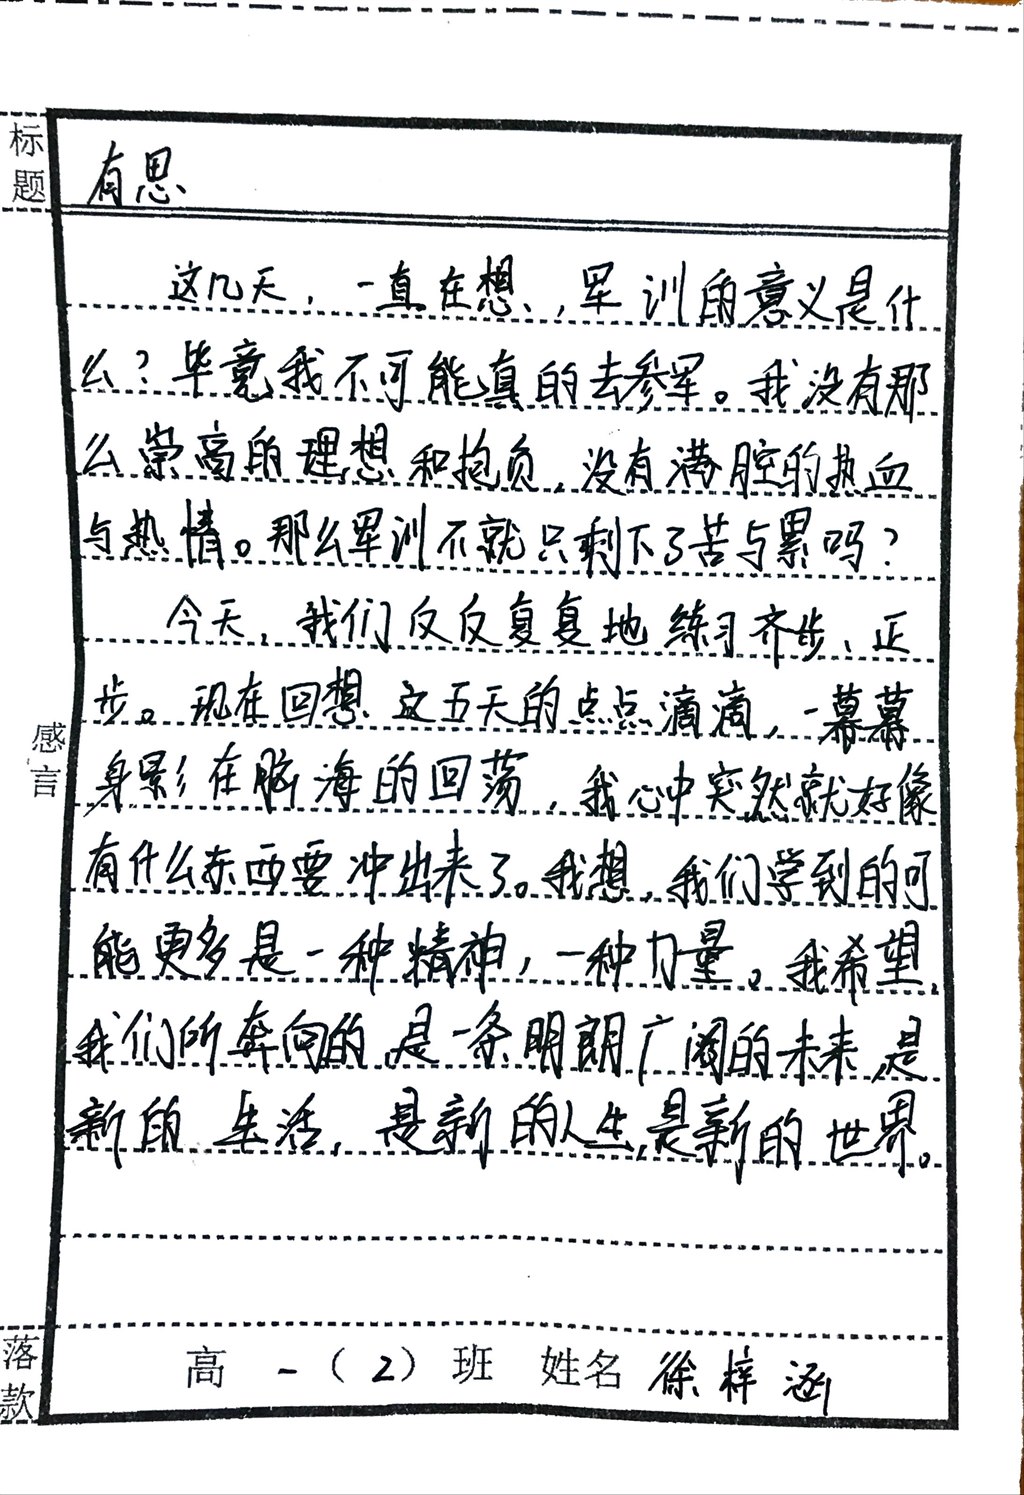 标题
有思
这几天，一直在想，军训的意义是什
么？毕竟我不可能真的去参军。我没有那
么崇高的理想和抱负，没有满腔的热血
与热情。那么军训不就只剩下了苦与累吗？
今天，我们反反复复地练习齐步、正
步。现在回想这五天的点点滴滴，一幕幕
身影在脑海的回荡，我心中突然就好像
有什么东西要冲出来了。我想，我们学到的可
能更多是一种精神，一种力量。我希望，
我们所奔向的，是一条明朗广阔的未来，是
新的生活，是新的人生，是新的世界。
感言
落款
高一（2）班 姓名 徐梓涵